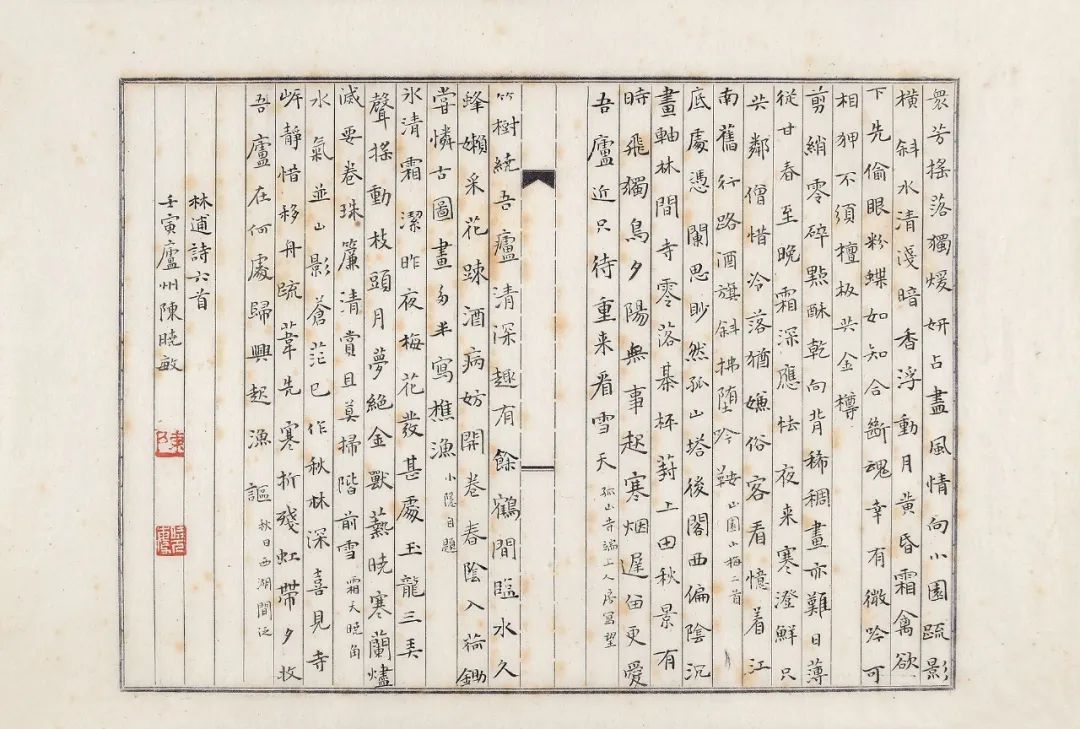 眾芳搖落獨煖妍占盡風情向小園疏影
橫斜水清淺暗香浮動月黃昏霜禽欲
下先偷眼粉蝶如知合斷魂幸有微吟可
相狎不須檀板共金樽
剪綃零碎點酥乾向背稀稠畫亦難日薄
從甘春至晚霜深應怯夜来寒澄鮮只
共鄰僧惜冷落猶嫌俗客看憶着江
南舊行路酒旗斜拂墮吟鞍 山園小梅二首
底處憑闌思眇然孤山塔後閣西偏陰沉
畫軸林間寺零落棊枰葑上田秋景有
時飛獨鳥夕陽無事起寒烟遲留更愛
吾廬近只待重来看雪天 孤山寺端上人房寫望
竹樹繞吾廬清深趣有餘鶴閒臨水久
蜂嬾采花疎酒病妨開卷春陰入荷鋤
嘗憐古圖畫多半寫樵漁 小隱自題
氷清霜潔昨夜梅花發甚處玉龍三弄
聲搖動枝頭月夢絕金獸爇曉寒蘭燼
滅要卷珠簾清賞且莫掃階前雪 霜天曉角
水氣並山影蒼茫已作秋林深喜見寺
岸靜惜移舟疏葦先寒折殘虹帶夕收
吾廬在何處歸興起漁謳 秋日西湖閒泛
林逋詩六首
壬寅廬州陳曉敏